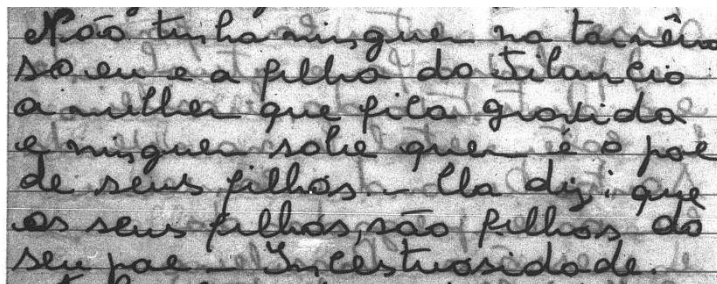 Não tinha ninguen na torneira
so eu e a filha do Silancio
a mulher que fica gravida
e ninguen sabe quen é o pae
de seus filhos. – Ela diz: que
os seus filhos, são filhos do
seu pae – Incestuosidade.